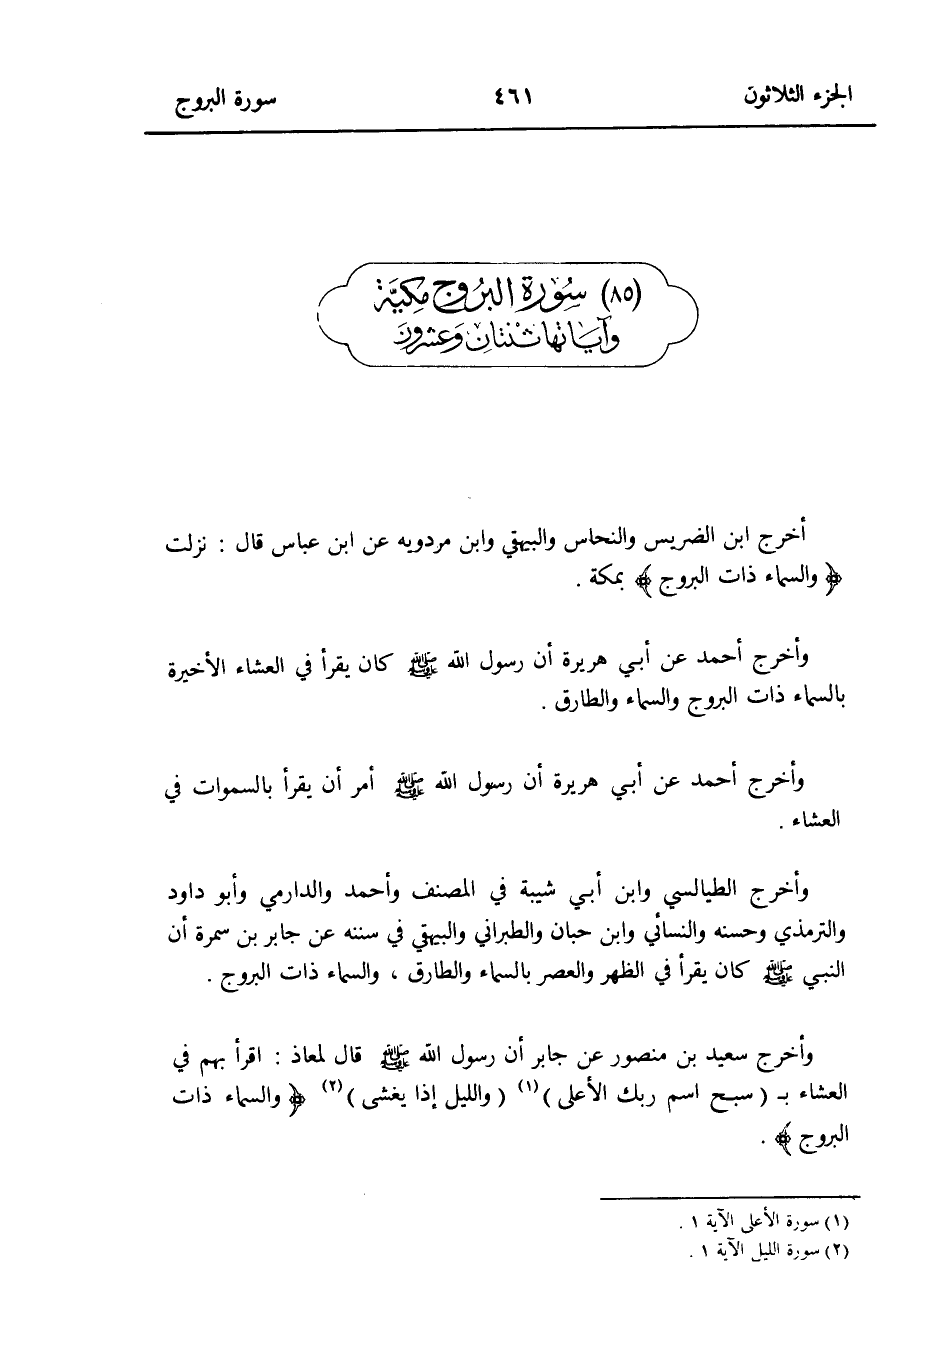 الجزء الثلاثون ٤٦١ سورة البروج
(٨٥) سُورَة البُرُوج مكيَّة
وَآيَاتهَا ثنْتَانِ وَعشرُونَ
أخرج ابن الضريس والنحاس والبيهقي وابن مردويه عن ابن عباس قال : نزلت
﴿ والسماء ذات البروج ﴾ بمكة .
وأخرج أحمد عن أبـي هريرة أن رسول الله ﷺ كان يقرأ في العشاء الأخيرة
بالسماء ذات البروج والسماء والطارق .
وأخرج أحمد عن أبـي هريرة أن رسول الله ﷺ أمر أن يقرأ بالسموات في
العشاء .
وأخرج الطيالسي وابن أبـي شيبة في المصنف وأحمد والدارمي وأبو داود
والترمذي وحسنه والنسائي وابن حبان والطبراني والبيهقي في سننه عن جابر بن سمرة أن
النبـي ﷺ كان يقرأ في الظهر والعصر بالسماء والطارق ، والسماء ذات البروج .
وأخرج سعيد بن منصور عن جابر أن رسول الله ﷺ قال لمعاذ : اقرأ بهم في
العشاء بـ ( سبـح اسم ربك الأعلى )(١) ( والليل إذا يغشى )(٢) ﴿ والسماء ذات
البروج ﴾ .
(١) سورة الأعلى الآية ١ .
(٢) سورة الليل الآية ١ .